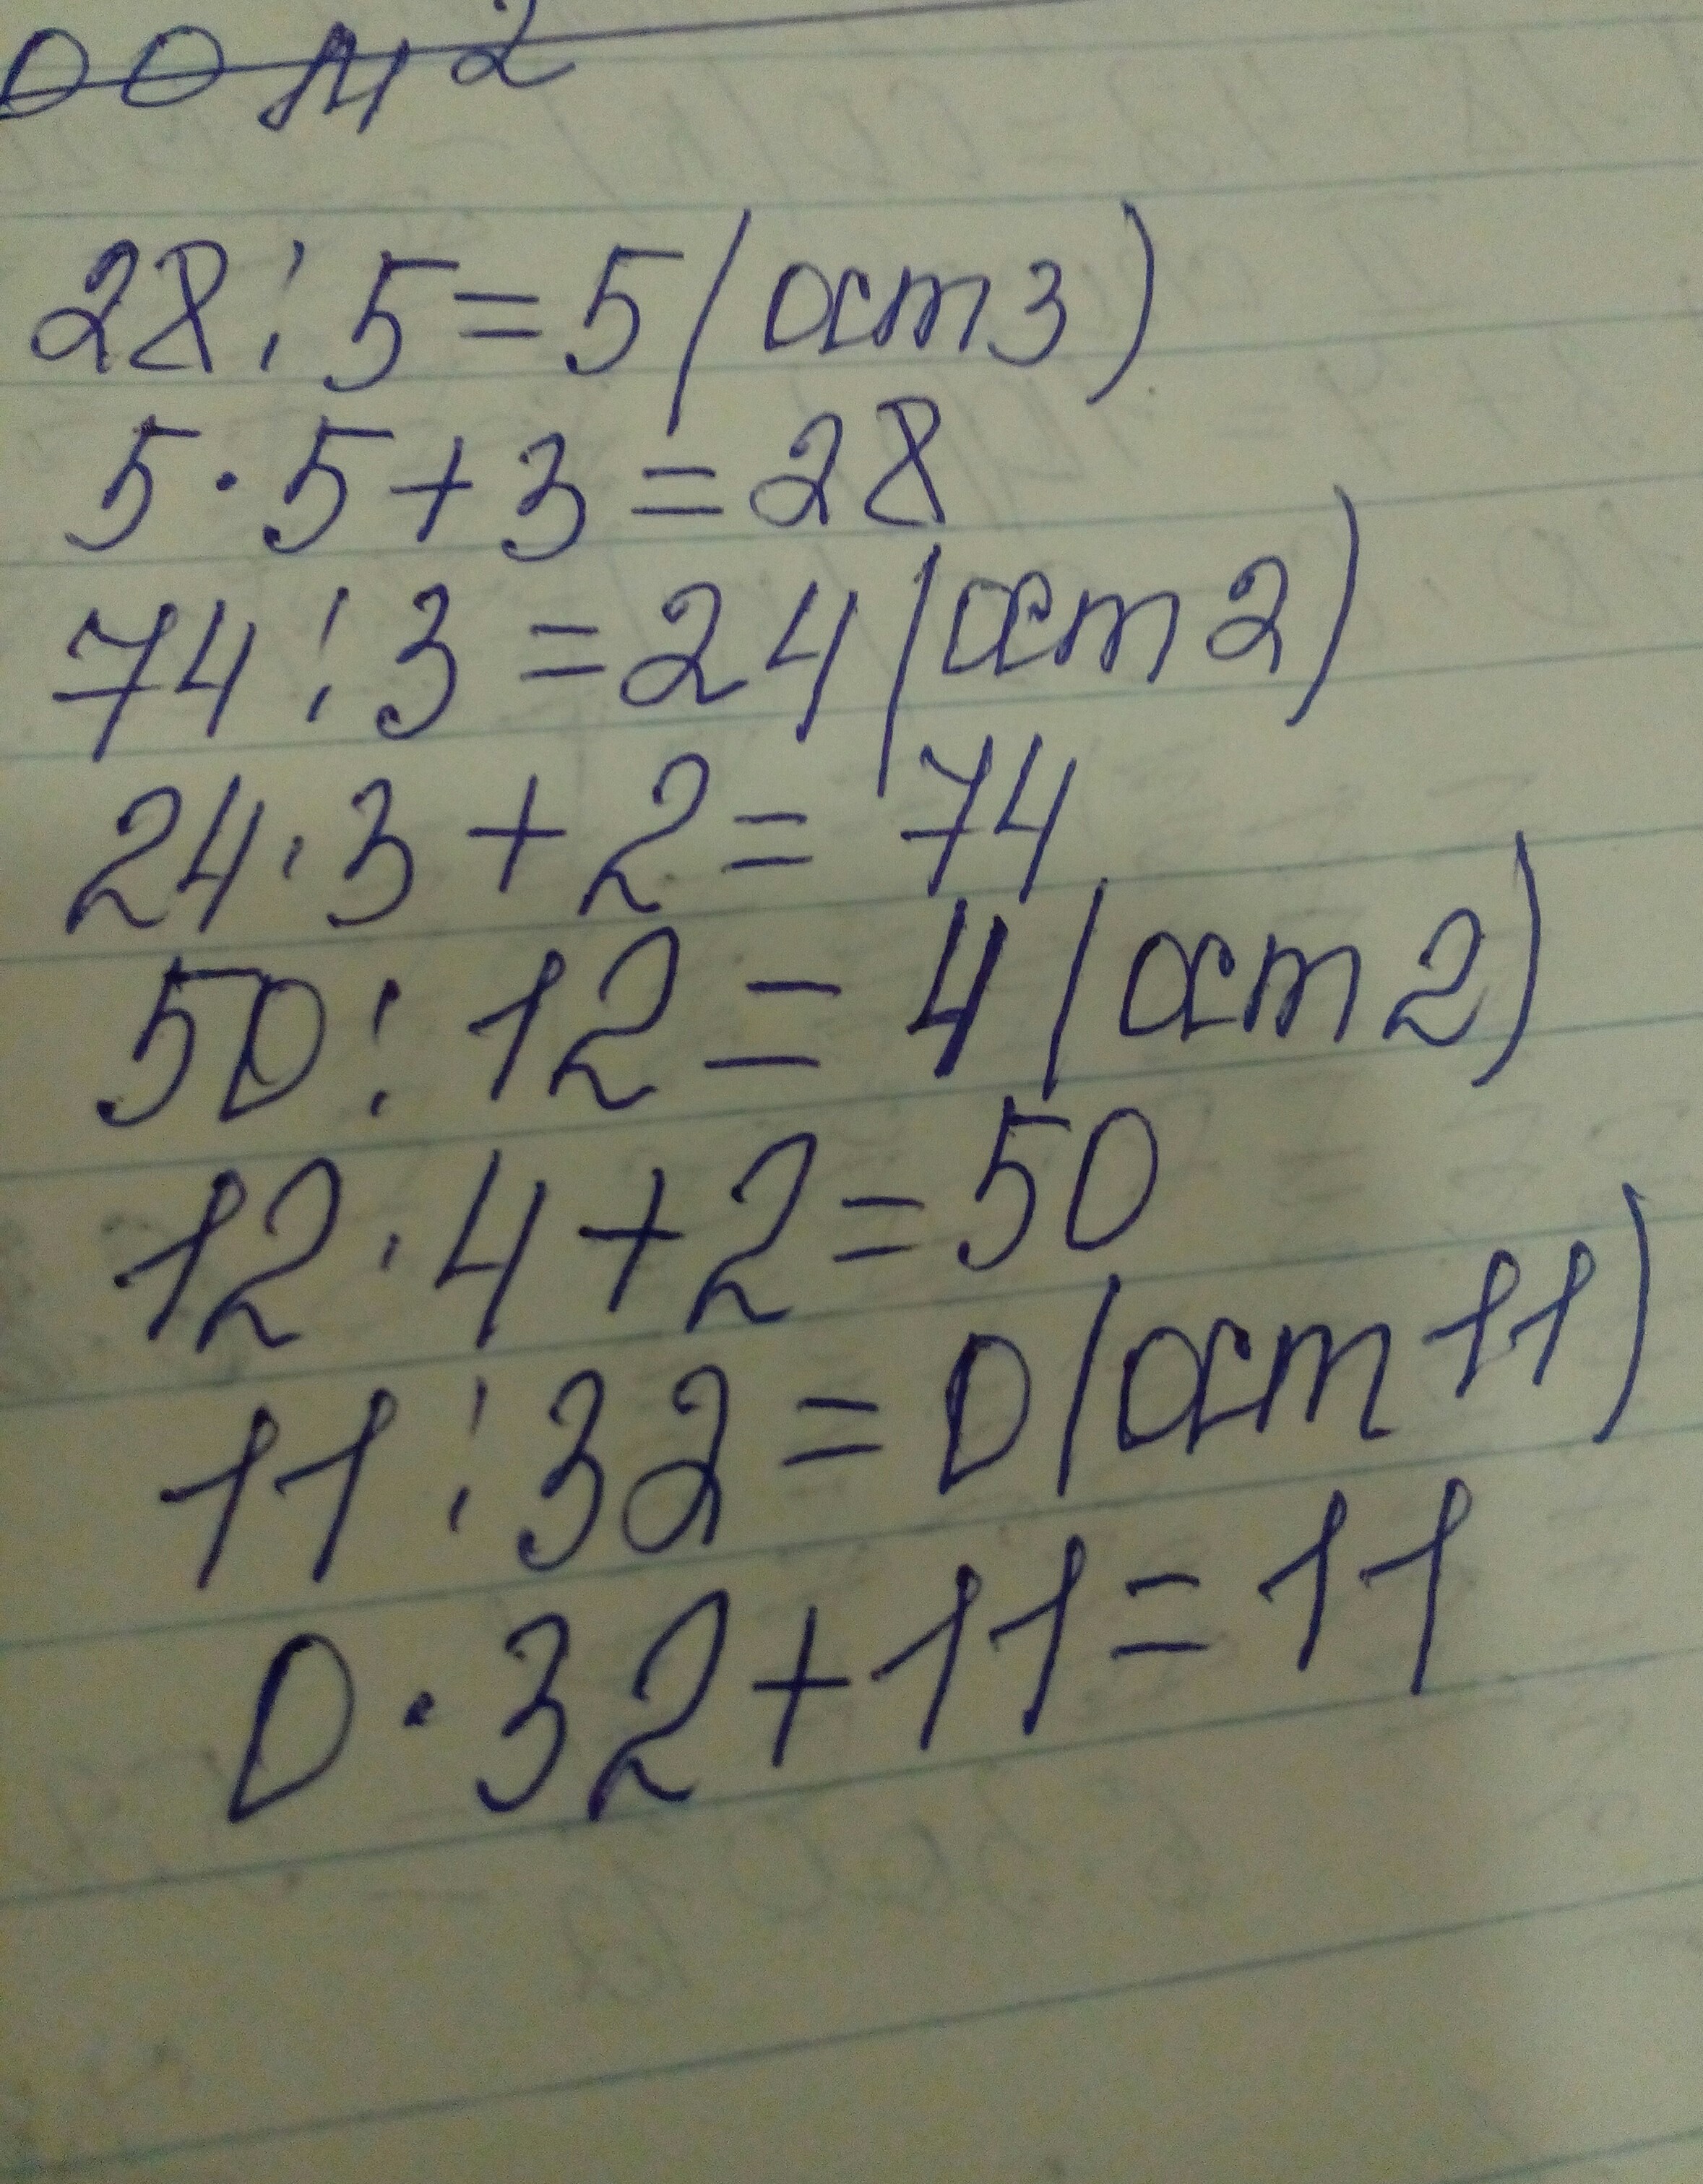 00 м²
28:5=5(ост3)
5·5+3=28
74:3=24(ост2)
24·3+2=74
50:12=4(ост2)
12·4+2=50
11:32=0(ост11)
0·32+11=11